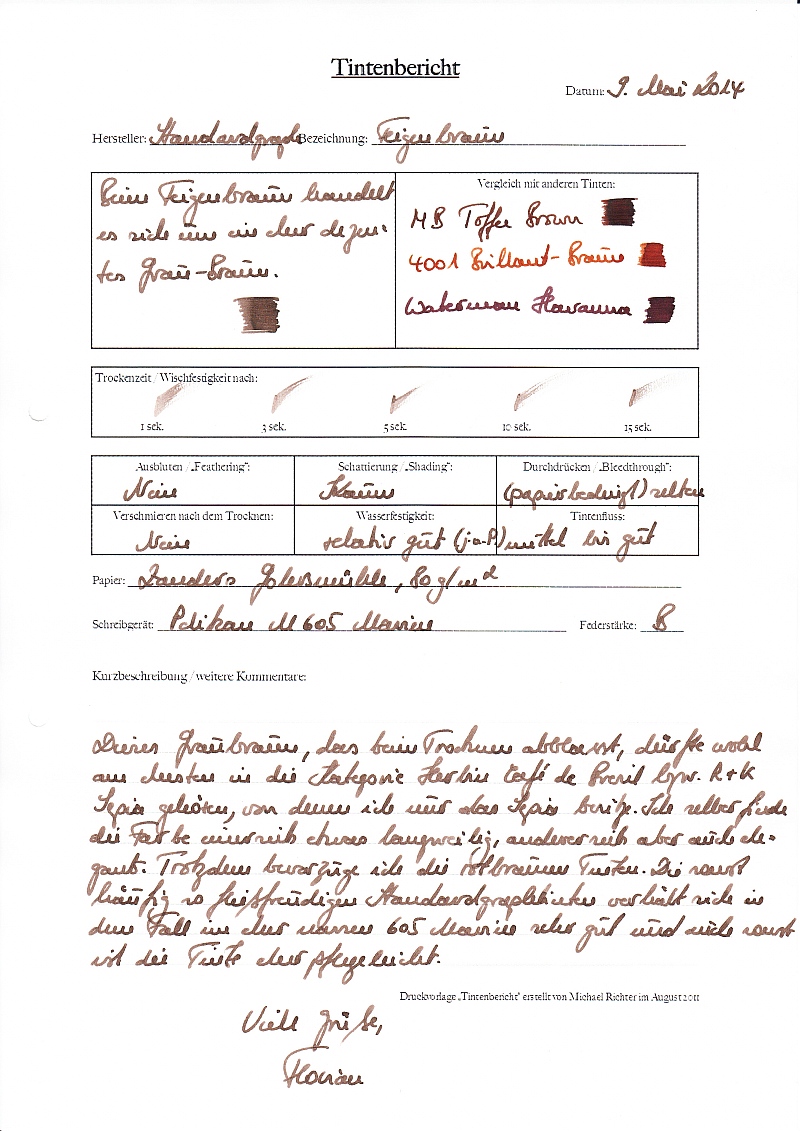 Tintenbericht
Datum: 9. Mai 2014
Hersteller: Standardgraph Bezeichnung: Feigenbraun
Beim Feigenbraun handelt
es sich um ein eher dezen-
tes Grau-Braun.
Vergleich mit anderen Tinten:
MB Toffee Brown
4001 Brillant-Braun
Waterman Havanna
Trockenzeit / Wischfestigkeit nach:
1 sek. 3 sek. 5 sek. 10 sek. 15 sek.
Ausbluten / „Feathering": Schattierung / „Shading": Durchdrücken / „Bleedthrough":
Nein Kaum (papierbedingt) selten
Verschmieren nach dem Trocknen: Wasserfestigkeit: Tintenfluss:
Nein relativ gut (j.n.P.) mittel bis gut
Papier: Zanders Gohrsmühle, 80 g/m²
Schreibgerät: Pelikan M605 Marine Federstärke: B
Kurzbeschreibung / weitere Kommentare:
Dieses Graubraun, das beim Trocknen abblasst, dürfte wohl
am ehesten in die Kategorie Herbin Café de Bresil bzw. R+K
Sepia gehören, von denen ich nur das Sepia besitze. Ich selber finde
die Farbe einerseits etwas langweilig, andererseits aber auch ele-
gant. Trotzdem bevorzuge ich die rotbraunen Tinten. Die sonst
häufig so fließfreudigen Standardgraphtinten verhält sich in
dem Fall in der neuen 605 Marine sehr gut und auch sonst
ist die Tinte eher pflegeleicht.
Druckvorlage „Tintenbericht" erstellt von Michael Richter im August 2011
Viele Grüße,
Florian